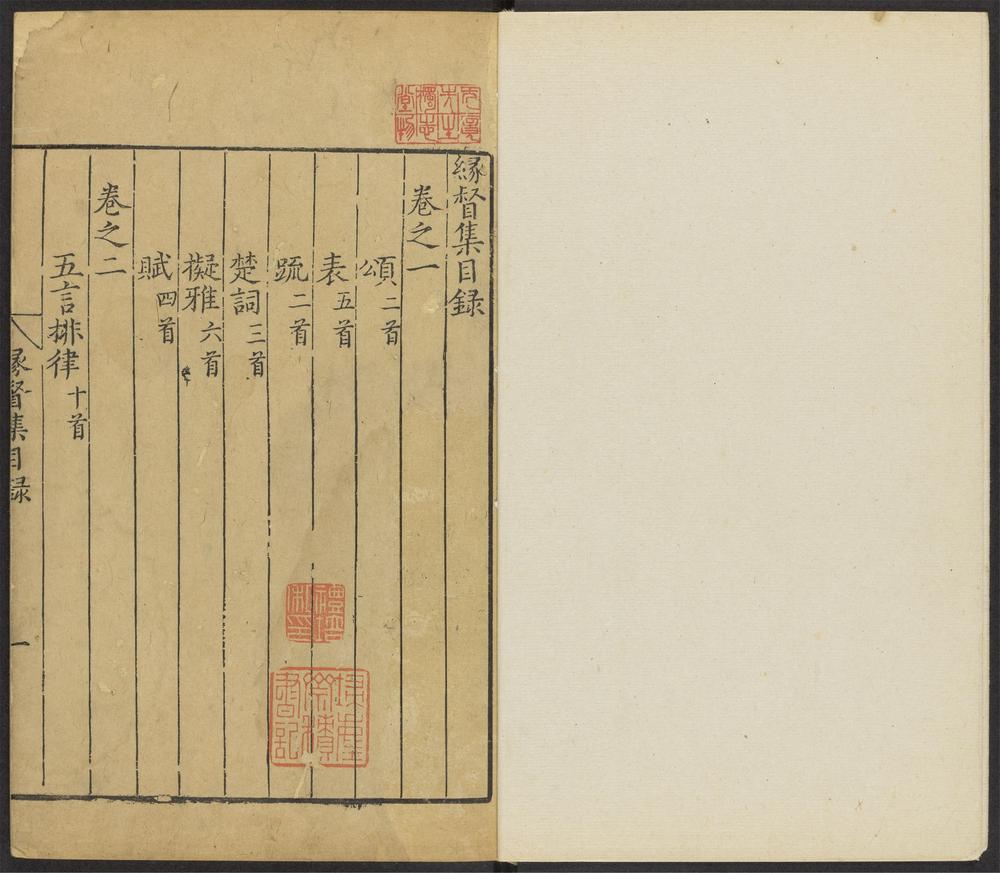 緣督集目録
卷之一
頌二首
表五首
䟽二首
楚詞三首
擬雅六首
賦四首
卷之二
五言排律十首
緣督集目録
一